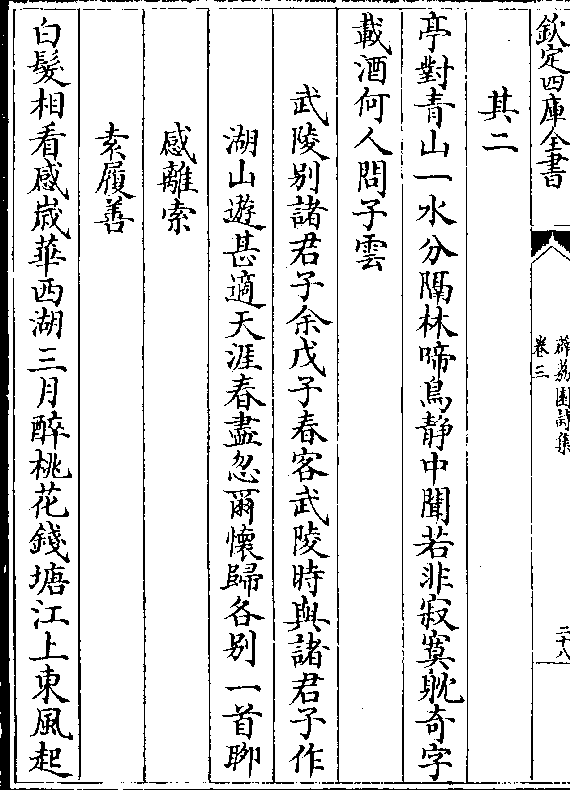 欽定四庫全書
薜荔園詩集
卷三
二十八
其二
亭對青山一水分隔林啼鳥静中聞若非寂寞躭奇字
載酒何人問子雲
武陵别諸君子余戊子春客武陵時與諸君子作
湖山遊甚適天涯春盡忽爾懷歸各别一首聊
感離索
素履善
白髮相看感嵗華西湖三月醉桃花錢塘江上東風起